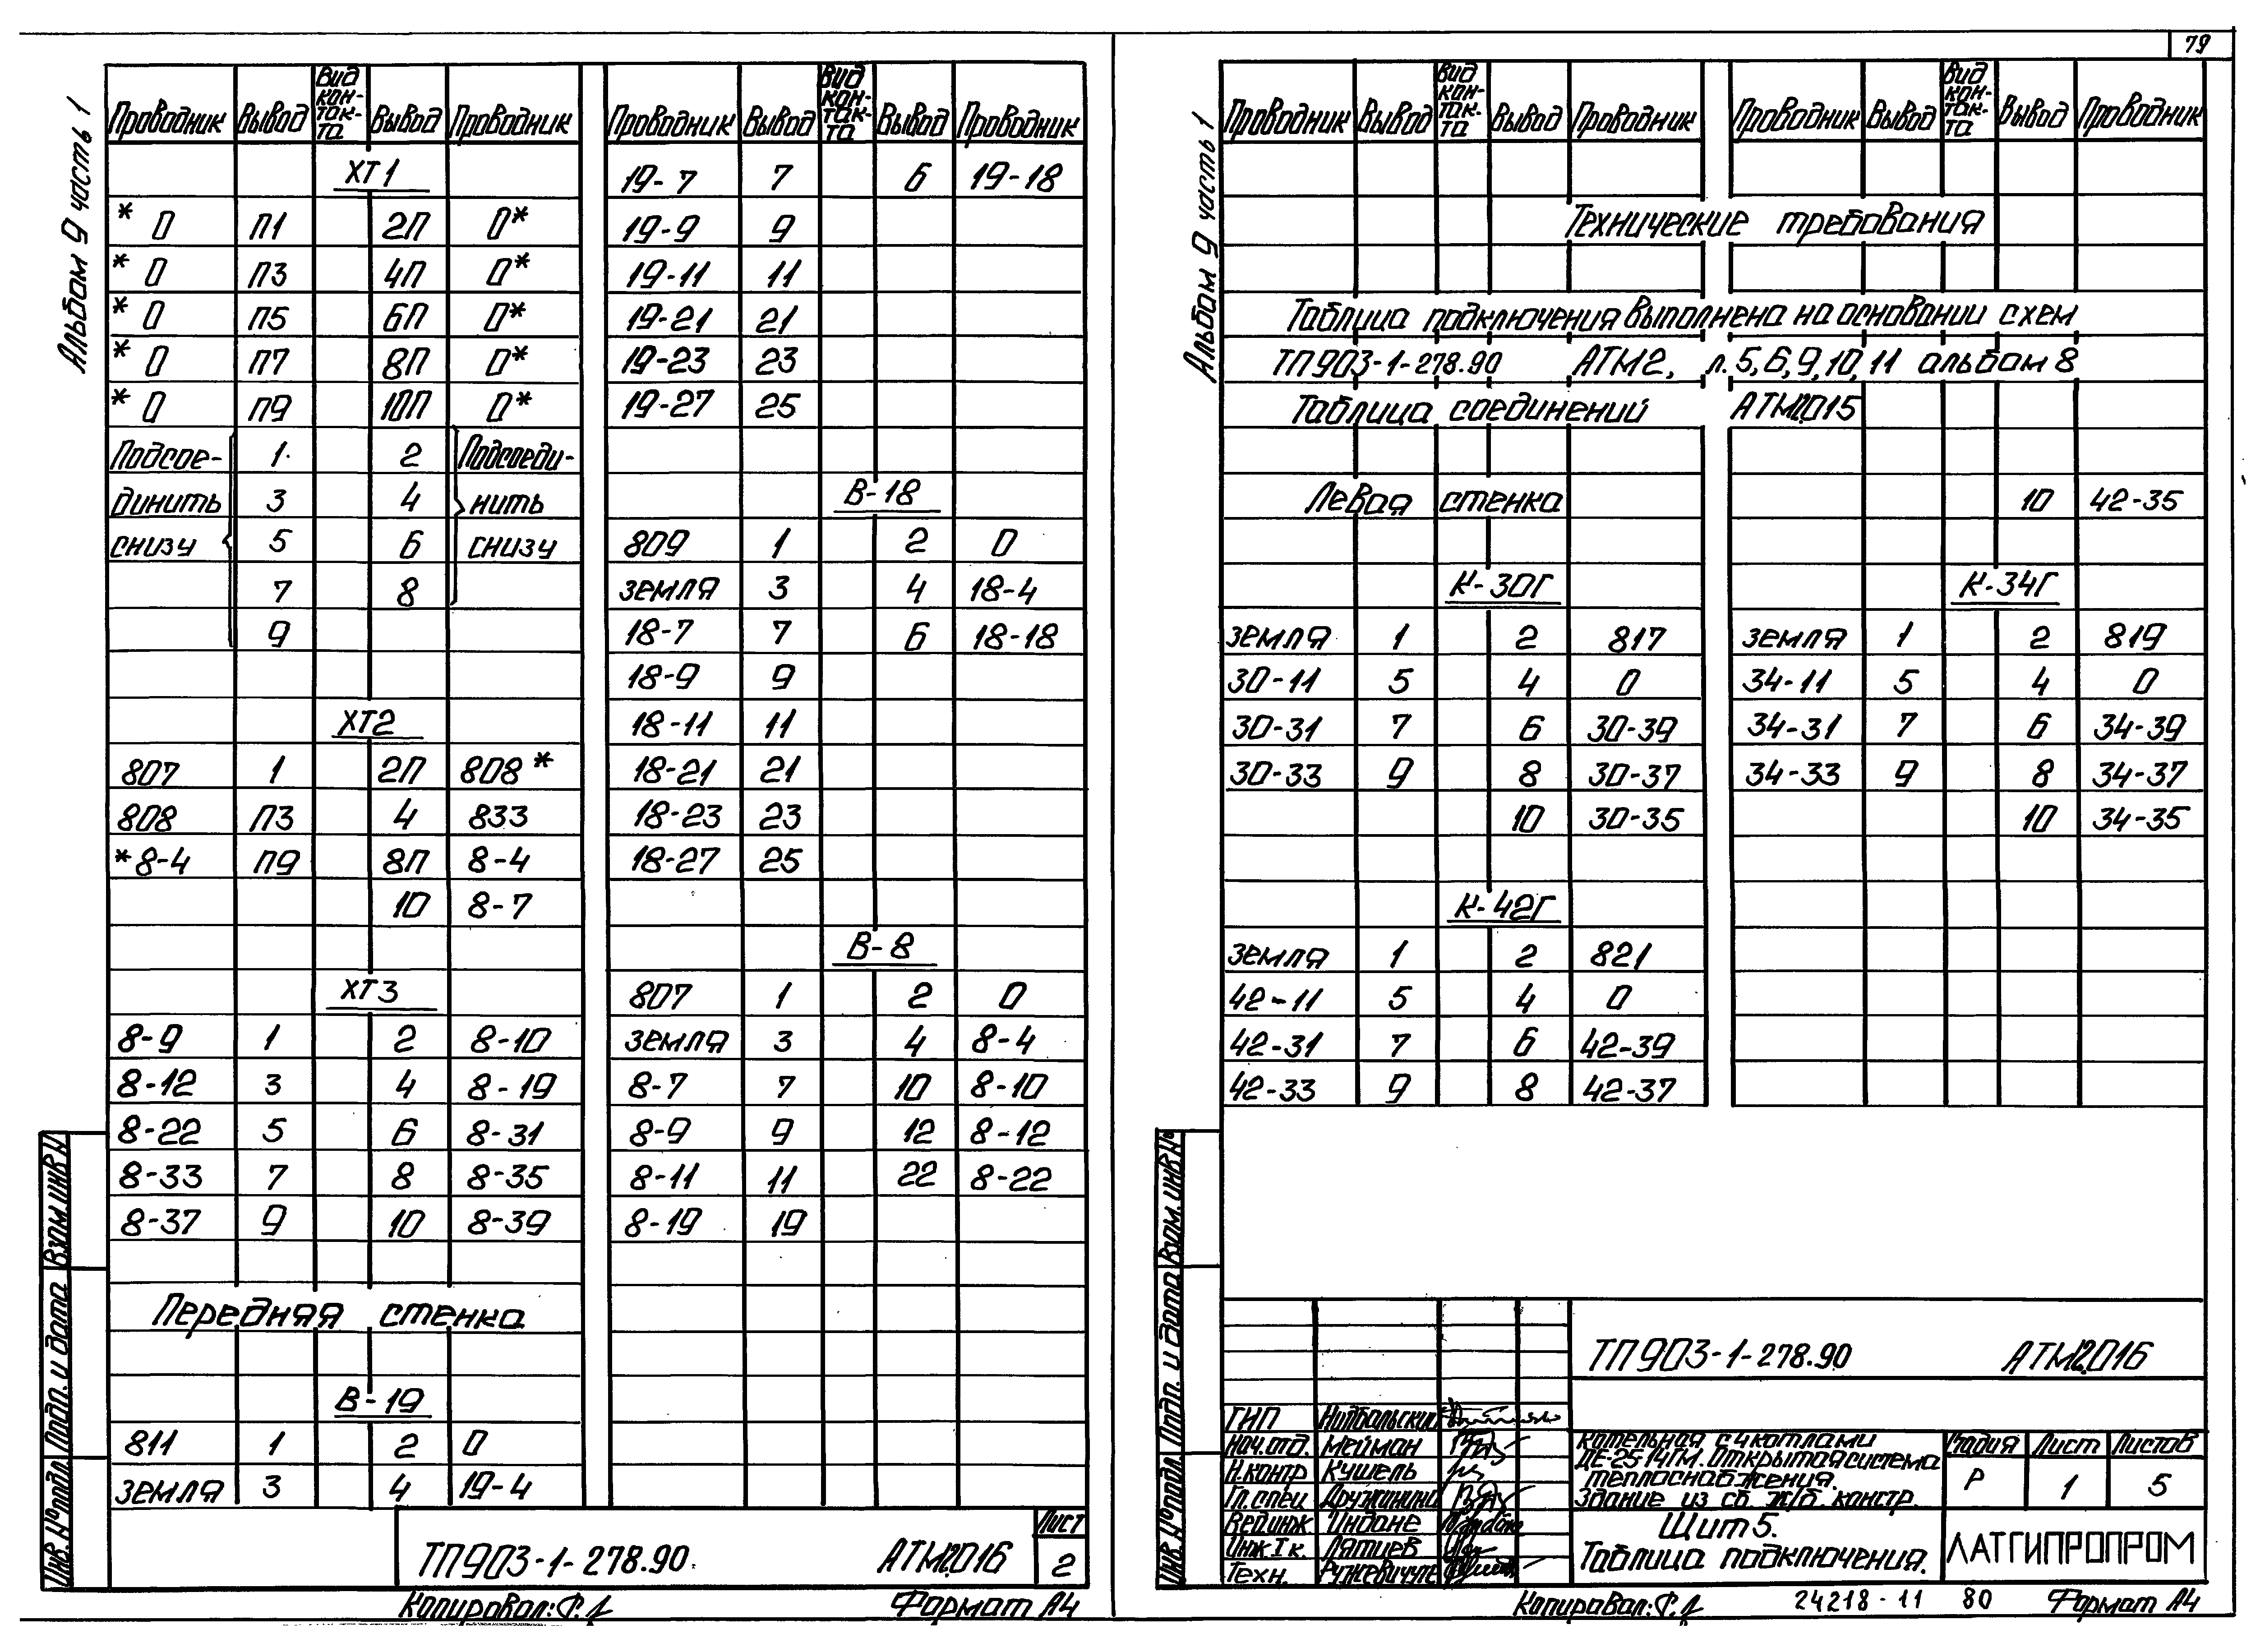 79
Альбом 9 часть 1
Проводник Вывод Вид кон-так-та Вывод Проводник
ХТ1
* 0 П1 2П 0*
* 0 П3 4П 0*
* 0 П5 6П 0*
* 0 П7 8П 0*
* 0 П9 10П 0*
Подсое- 1 2 Подсоеди-
динить 3 4 нить
снизу 5 6 снизу
7 8
9
ХТ2
807 1 2П 808*
808 П3 4 833
*8-4 П9 8П 8-4
10 8-7
ХТ3
8-9 1 2 8-10
8-12 3 4 8-19
8-22 5 6 8-31
8-33 7 8 8-35
8-37 9 10 8-39
Передняя стенка
В-19
811 1 2 0
земля 3 4 19-4
Проводник Вывод Вид кон-так-та Вывод Проводник
19-7 7 6 19-18
19-9 9
19-11 11
19-21 21
19-23 23
19-27 25
В-18
809 1 2 0
земля 3 4 18-4
18-7 7 6 18-18
18-9 9
18-11 11
18-21 21
18-23 23
18-27 25
В-8
807 1 2 0
земля 3 4 8-4
8-7 7 10 8-10
8-9 9 12 8-12
8-11 11 22 8-22
8-19 19
Взам.инв.N
Подп. и дата
Инв.N°подл.
ТП903-1-278.90 АТМ2.016
Лист
2
Копировал:
Формат А4
Альбом 9 часть 1
Проводник Вывод Вид кон-так-та Вывод Проводник
Проводник Вывод Вид кон-так-та Вывод Проводник
Технические требования
Таблица подключения выполнена на основании схем
ТП903-1-278.90 АТМ2, л.5,6,9,10,11 альбом 8
Таблица соединений АТМ2.015
Левая стенка
К-30Г
земля 1 2 817
30-11 5 4 0
30-31 7 6 30-39
30-33 9 8 30-37
10 30-35
К-42Г
земля 1 2 821
42-11 5 4 0
42-31 7 6 42-39
42-33 9 8 42-37
10 42-35
К-34Г
земля 1 2 819
34-11 5 4 0
34-31 7 6 34-39
34-33 9 8 34-37
10 34-35
Взам.инв.N°
Подп. и дата
Инв.N°подл.
ТП903-1-278.90 АТМ2.016
ГИП
Нач.отд. Мейман
Н.контр Кушель
Гл.спец Дружинина
Вед.инж Индане
Инж I к. Лятиев
Техн.
Котельная с 4 котлами
ДЕ-25-14ГМ. Открытая система
теплоснабжения.
Здание из сб. ж/б. констр.
Стадия Лист Листов
Р 1 5
Щит 5.
Таблица подключения.
ЛАТГИПРОПРОМ
Копировал:
24218-11 80
Формат А4